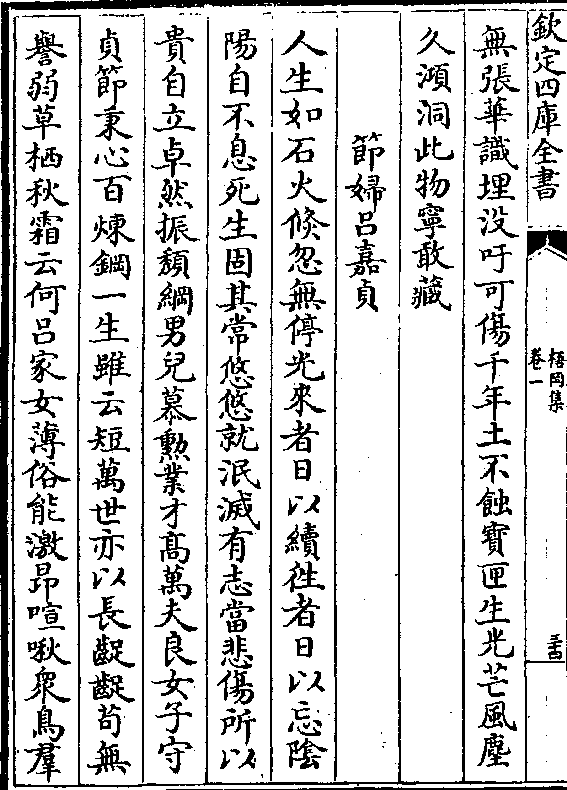 欽定四庫全書
梧岡集
卷一
三十四
無張華識埋没吁可傷千年土不蝕寳匣生光芒風塵
久澒洞此物寧敢藏
節婦吕嘉貞
人生如石火倐忽無停光來者日以續徃者日以忘陰
陽自不息死生固其常悠悠就泯滅有志當悲傷所以
貴自立卓然振頽綱男兒慕勲業才髙萬夫良女子守
貞節秉心百煉鋼一生雖云短萬世亦以長齪齪苟無
譽弱草栖秋霜云何吕家女薄俗能激昂喧啾衆鳥羣